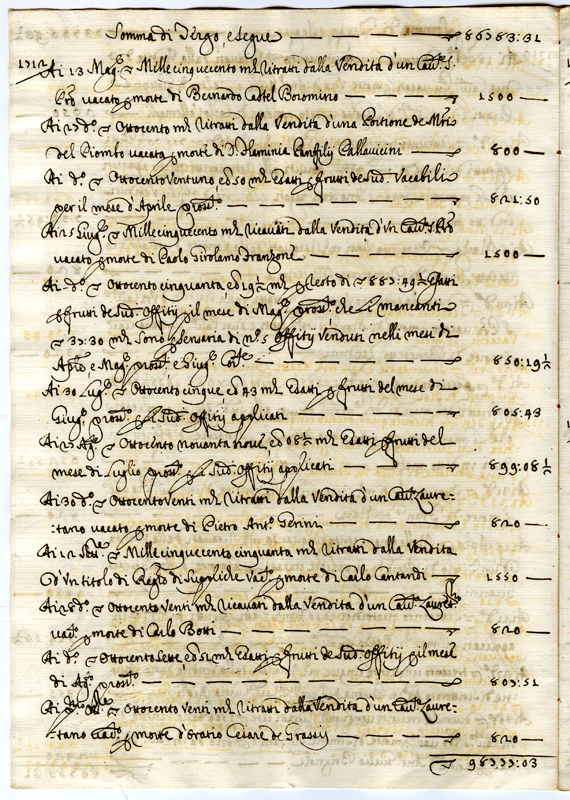 Somma di Tergo, e segue — — — — 86383:31
1712 Ai 13 Magº. Mille cinquecento mta ritratti dalla Vendita d'un Cavto. S.
Pro vacato p morte di Bernardo Castel Boromino — — 1500 —
Ai 27 do. Ottocento mta ritratti dalla Vendita d'una Portione de Mti
del Piombo vacata p morte di Da. Flaminia Panfilij Pallavicini — 800 —
Ai do. Ottocento Ventuno ed 50 mta Esatti p frutti de Sud. Vacabili
per il mese d'Aprile prossº. — — — — 821:50
Ai 25 Giugº. Mille cinquecento mta ricavati dalla Vendita d'Un Cavto. S. Pro
vacato p morte di Paolo Girolamo Franzone — — — 1500 —
Ai do. Ottocento cinquanta ed 19½ mta p resto di 883:49½ Esatti
p frutti de Sud. Offitij p il mese di Magº. prossº. che li mancanti
33:30 mta sono p sensaria di nº. 5 Offitij Venduti nelli mesi di
Aple, e Magº. prossº. e Giugº. Corte. — — — — 850:19½
Ai 30 Lugº. Ottocento cinque ed 43 mta Esatti p frutti del mese di
Giugº. prossº. p li Sud. Offitij applicati — — — — 805:43
Ai 27 Agº. Ottocento novanta nove ed 08½ mta Esatti p frutti del
mese di Luglio prossº. p li Sud. Offitij applicati — — — 899:08½
Ai 30 do. Ottocento venti mta ritratti dalla Vendita d'un Cavto. Laure:
:tano vacato p morte di Pietro Antº. Gerini — — — 820 —
Ai 12 Sette. Mille cinquecento cinquanta mta ritratti dalla Vendita
d'Un titolo di Regro di Suppliche Vacº. p morte di Carlo Cantardi — 1550 —
Ai 28 do. Ottocento Venti mta ricavati dalla Vendita d'un Cavto. Lauretº.
vacº. p morte di Carlo Botti — — — — 820 —
Ai do. Ottocento sette ed 51 mta Esatti p frutti de Sud. Offitij p il mese
di Agº. prossº. — — — — 807:51
Ai do. Ottocento Venti mta ritratti dalla Vendita d'un Cavto. Laure:
:tano vacº. p morte d'Oratio Cesare de Grassij — — — 820 —
98333:03